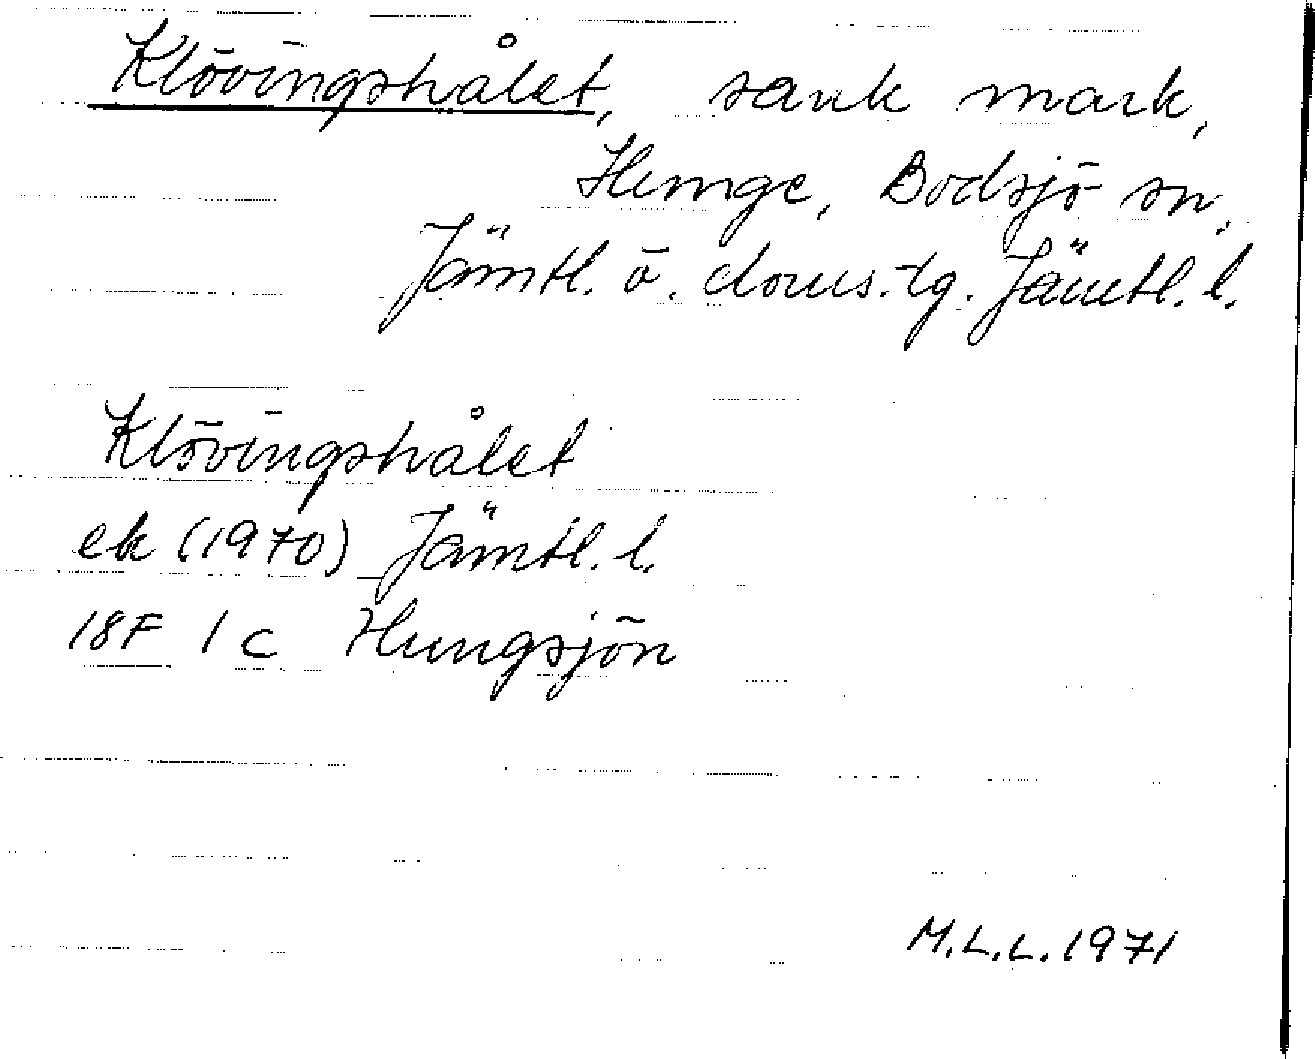 Klövingshålet, sank mark,
Hemge, Bodsjö sn,
Jämtl. ö. doms.-tg. Jämtl. l.
Klövingshålet
ek (1970) Jämtl. l.
18F 1c Hungsjön
M.L.L. 1971